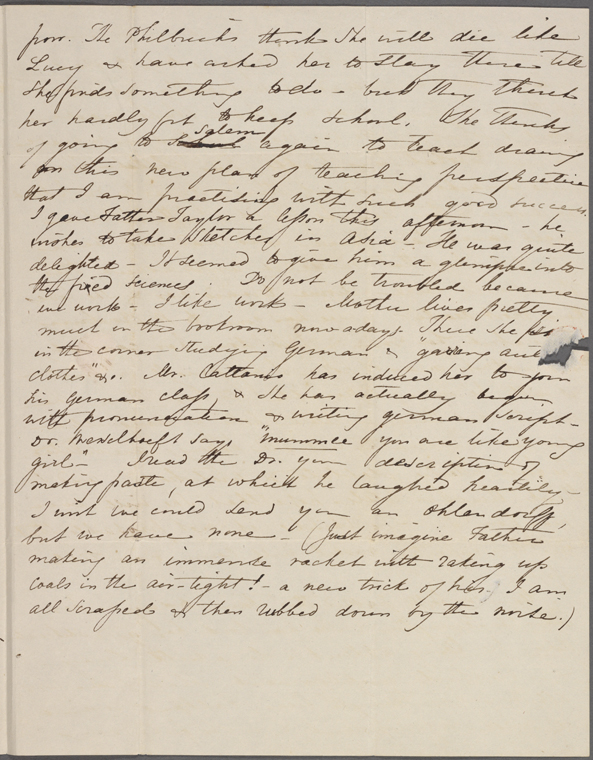 poor. The Philbricks think she will die like
Lucy & have asked her to stay there till
she finds something to do - but they think
her hardly fit to keep school. She thinks
of going to Salem again to teach drawing
on this new plan of teaching perspective
that I am practising with such good success.
I gave Father Taylor a lesson this afternoon - he
wishes to take sketches in Asia - He was quite
delighted - It seemed to give him a glimpse into
the fixed sciences. Do not be troubled because
we work - I like work - Mother lives pretty
much in the bookroom nowadays There she sits
in the corner studying German & "
clothes" &c. Mr. Cattanis has induced her to join
his German class, & she has actually begun
with pronunciation & writing german script -
Dr. Wesselhoeft says "mummee you are like young
girl" - I read the Dr. your description of
making paste, at which he laughed heartily -
I wish we could send you an Ohlendorff,
but we have none - (Just imagine Father
making an immense racket with raking up
coals in the air-tight! - a new trick of his. I am
all scraped & then rubbed down by the noise.)